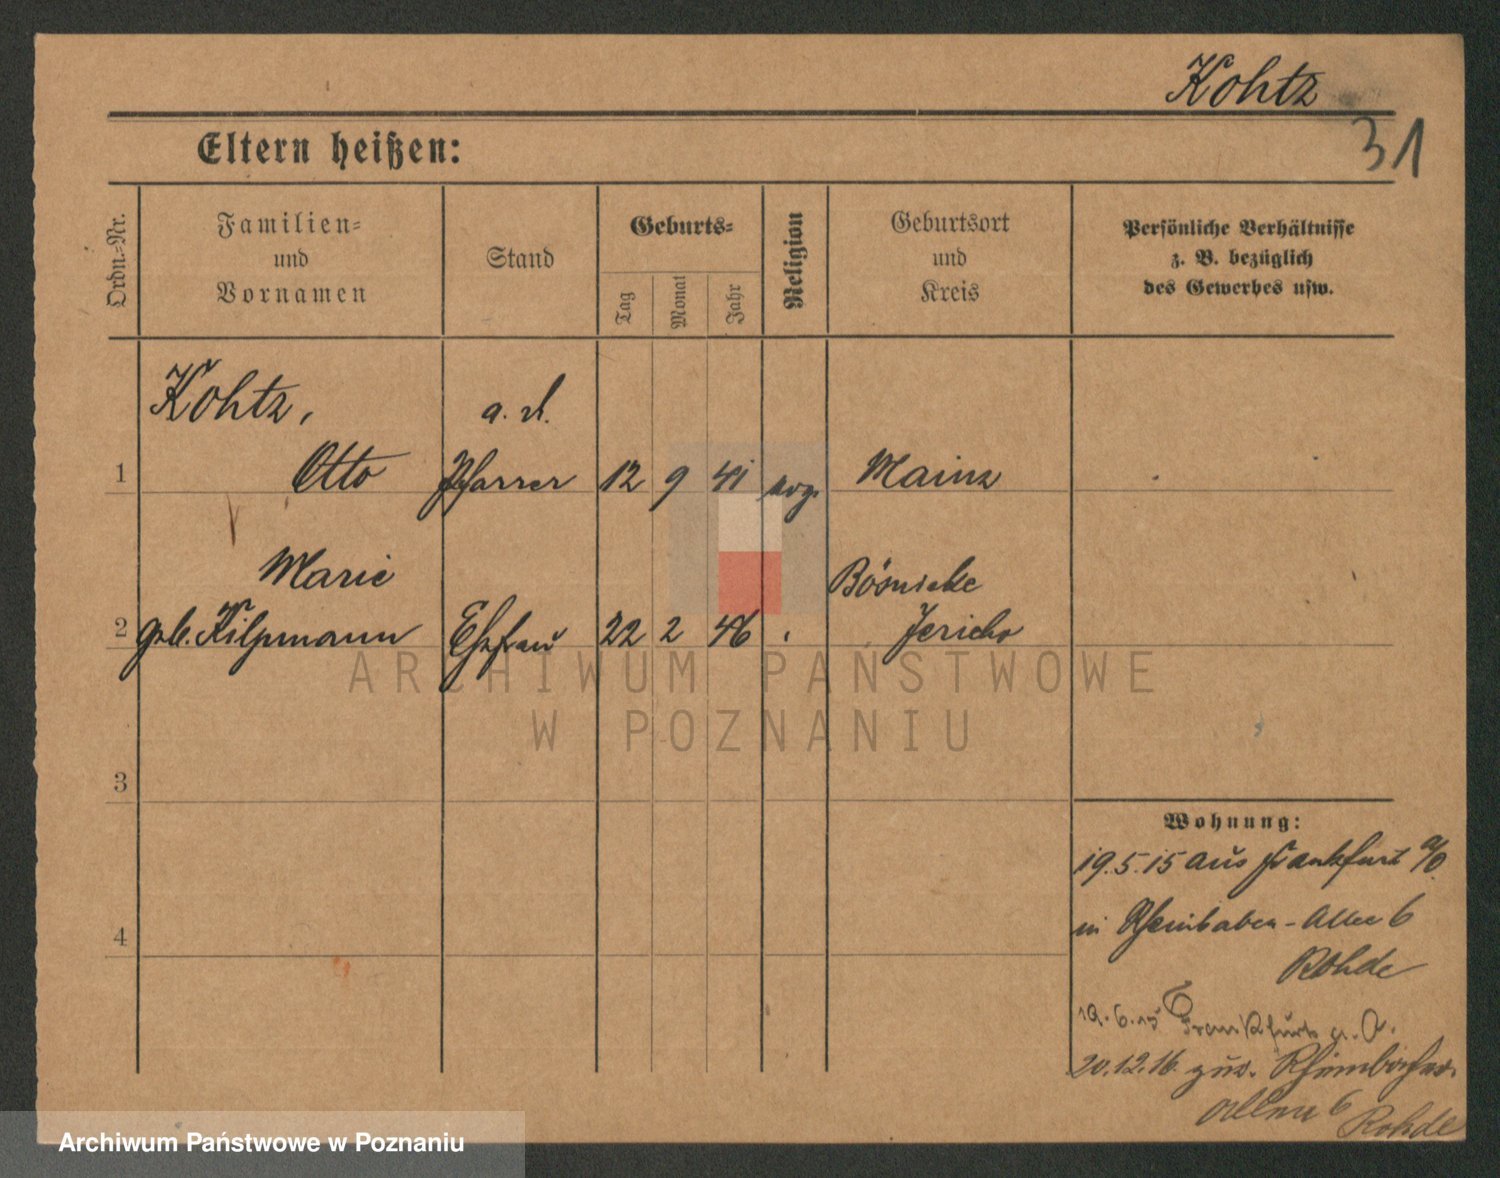 Kohtz
31
Eltern heißen:
Ordn.=Nr.
Familien=
und
Vornamen
Stand
Geburts=
Tag
Monat
Jahr
Religion
Geburtsort
und
Kreis
Persönliche Verhältnisse
z. B. bezüglich
des Gewerbes usw.
Kohtz, a. d.
1 Otto Pfarrer 12 9 41 evg. Mainz
Marie
2 geb. Kilpmann Ehefrau 22 2 46 Jericho
ARCHIWUM PAŃSTWOWE
W POZNANIU
3
4
Wohnung:
19.5.15 aus Frankfurt a/O.
in Rheinbaben-Allee 6
Rohde
19.6.15 Frankfurt a. O.
20.12.16. zur.
Allee 6 Rohde
Archiwum Państwowe w Poznaniu